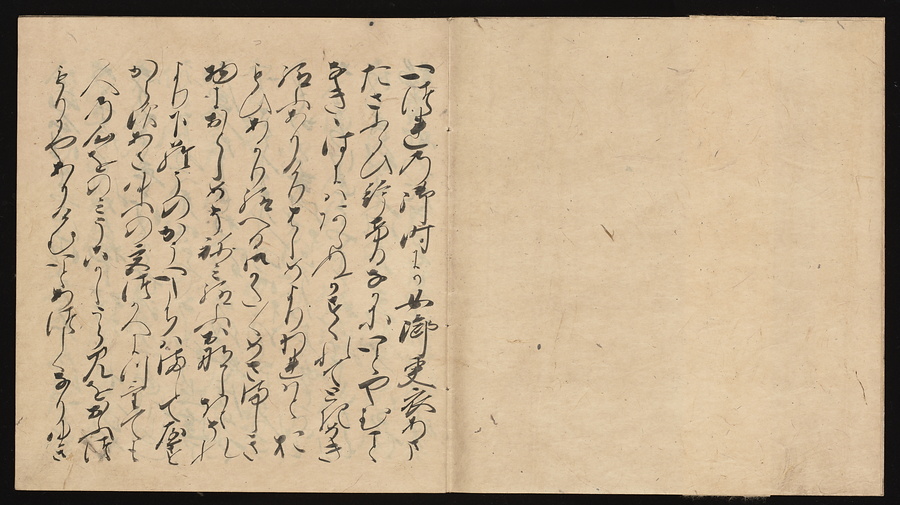 いつれの御時にか女御更衣あま
たさふらひ給けるなかにいとやむこと
なきゝはにはあらぬかすくれてときめき
給ふありけりはしめよりわれはとお
もひあかり給へる御かた〱めさましき
物におとしめそねみ給ふおなしほとそれ
より下らうのかういたちはましてやす
からすあさゆふの宮つかへにつけても
人の心をのみうこかしうらみをおふつ
もりにやありけむいとあつしくなりゆき